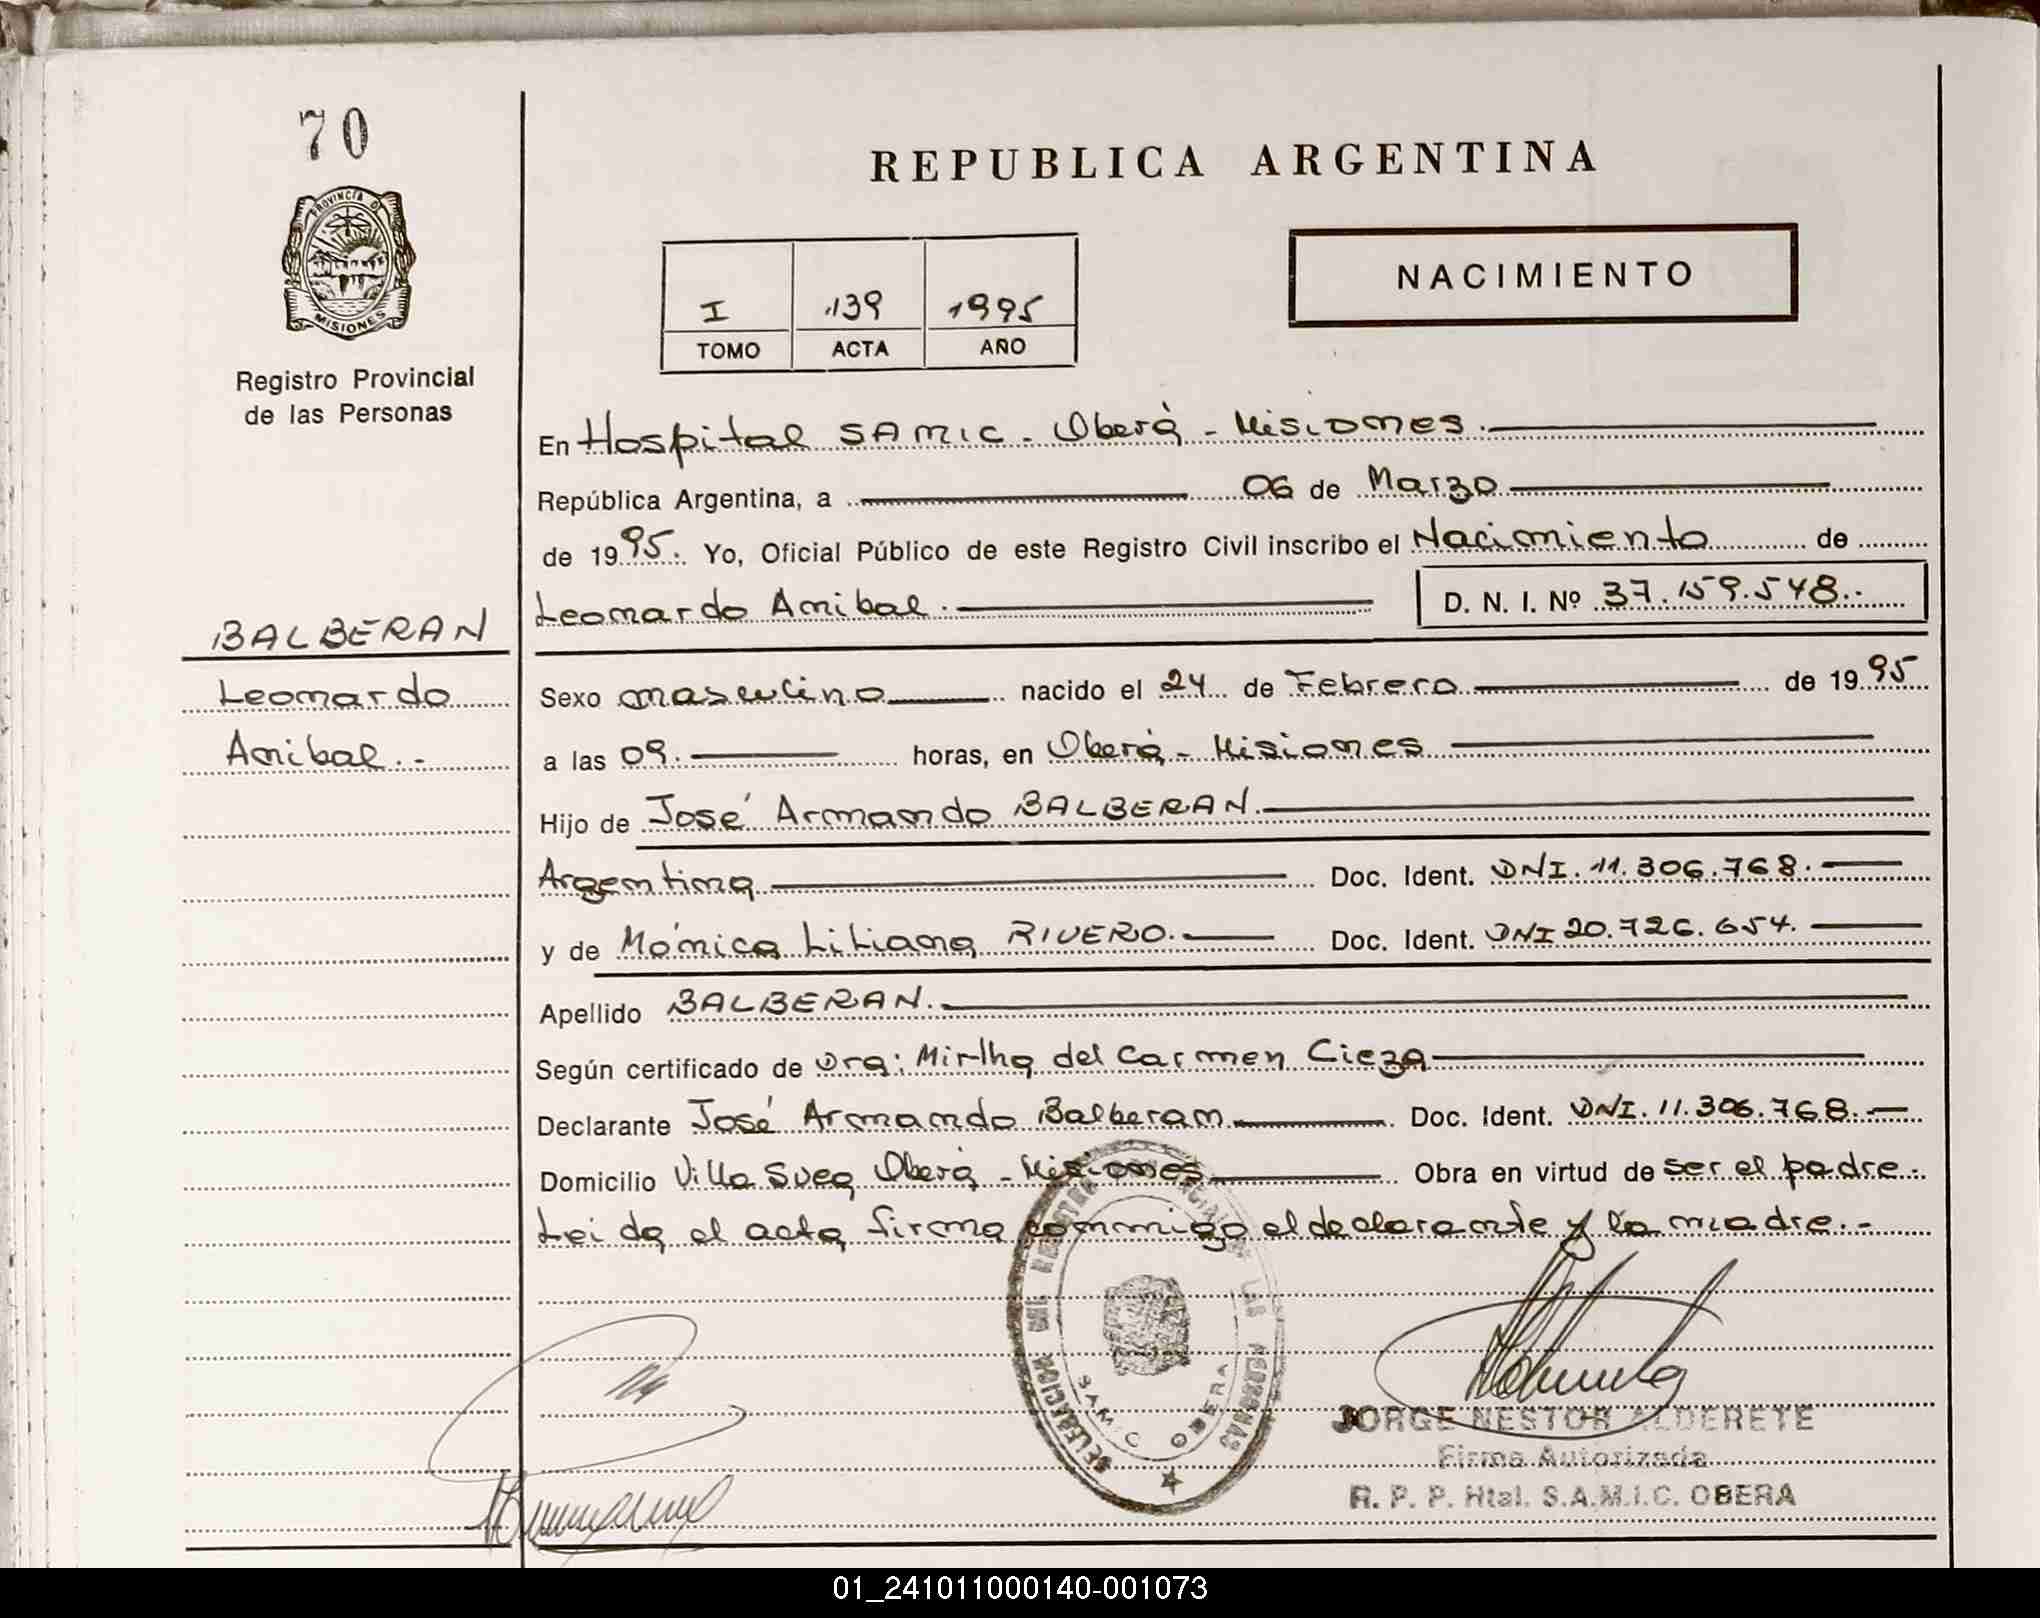 70
REPUBLICA ARGENTINA
PROVINCIA D
MISIONES
NACIMIENTO
I 139 1995
TOMO ACTA AÑO
Registro Provincial
de las Personas
En Hospital SAMIC - Oberá - Misiones.
República Argentina, a 06 de Marzo
de 1995. Yo, Oficial Público de este Registro Civil inscribo el Nacimiento de
Leonardo Anibal. D. N. I. Nº 37.159.548.-
BALBERAN
Leonardo
Anibal.-
Sexo masculino nacido el 24 de Febrero de 1995
a las 09. horas, en Oberá - Misiones
Hijo de José Armando BALBERAN.
Argentina Doc. Ident. DNI. 11.306.768.
y de Mónica Liliana RIVERO. Doc. Ident. DNI 20.726.654.
Apellido BALBERAN.
Según certificado de Dra: Mirtha del Carmen Cieza
Declarante José Armando Balberan Doc. Ident. DNI. 11.306.768.-
Domicilio Villa Svea Oberá - Misiones Obra en virtud de ser el padre.-
Leida el acta firma conmigo el declarante y la madre.-
DELEGACION DEL REGISTRO PROVINCIAL DE LAS PERSONAS
SAMIC OBERA
JORGE NESTOR ALDERETE
Firma Autorizada
R. P. P. Htal. S.A.M.I.C. OBERA
01_241011000140-001073